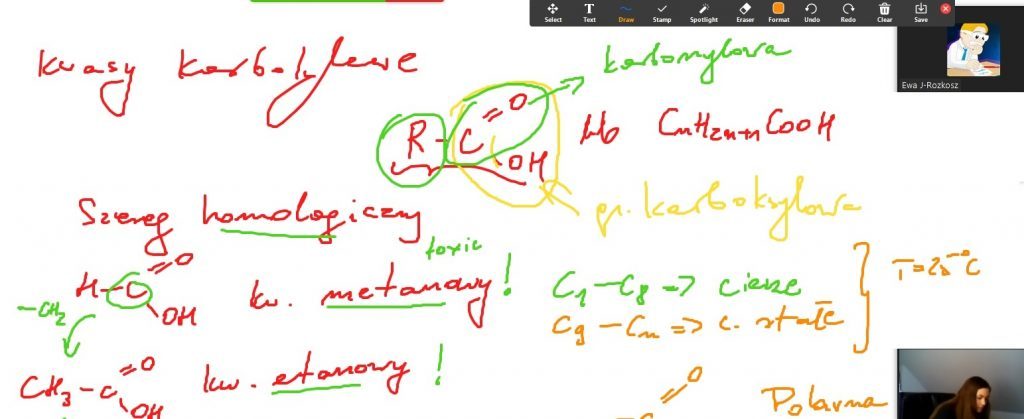 Select Text Draw Stamp Spotlight Eraser Format Undo Redo Clear Save
Ewa J-Rozkosz
kwasy karboksylowe
karbonylowa
R-C
=O
OH
lub CnH2n+1COOH
gr. karboksylowa
Szereg homologiczny
toxic
H-C
=O
OH
kw. metanowy!
-CH2
C1-C8 => ciecze
C9-Cn => c. stałe
T=25°C
CH3-C
=O
OH
kw. etanowy!
=O
C
Polarna